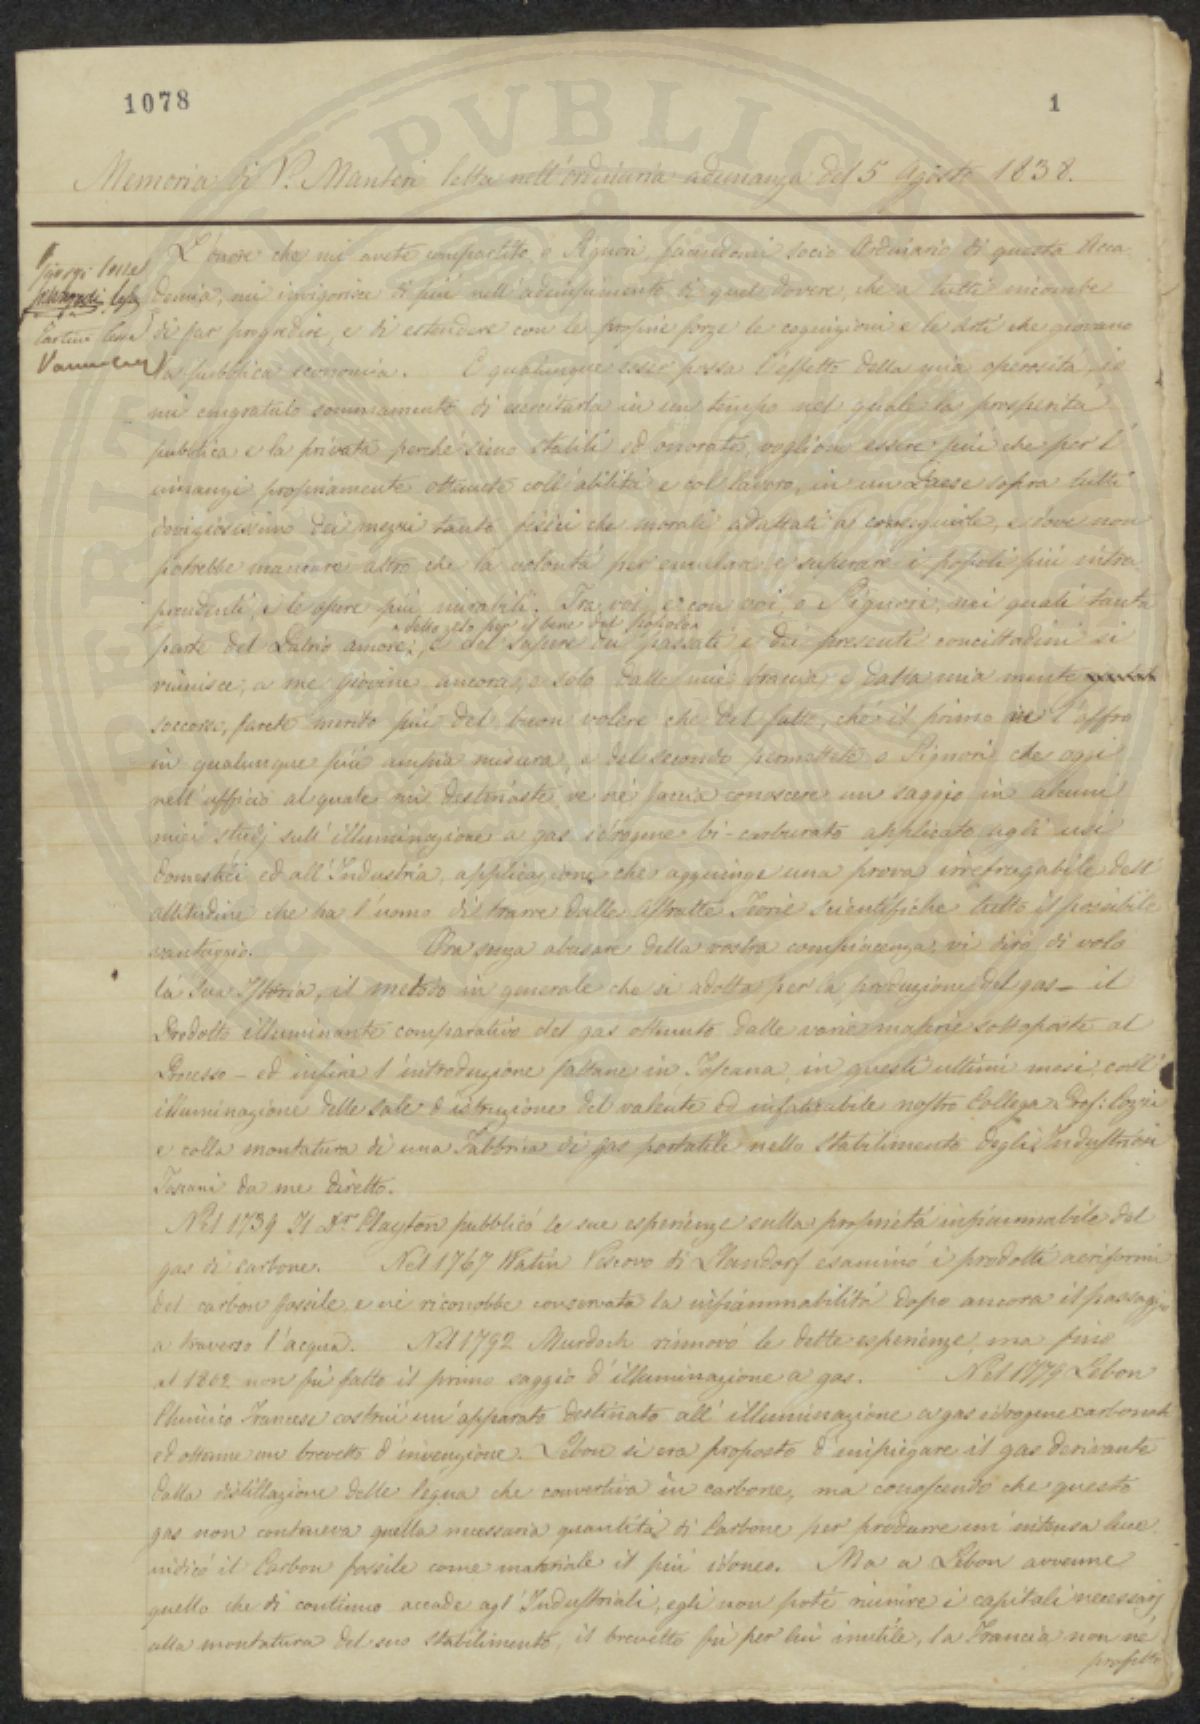 1078
1
Memoria di V. Manteri letta nell'ordinaria adunanza del 5 Agosto 1838.
L'onore che mi avete compartito o Signori, facendomi socio Ordinario di questa Acca
demia, mi invigorisce di più nell'adempimento di quel dovere, che a tutti incombe
di far progredire, e di estendere con le proprie forze le cognizioni e le Arti che giovano
la pubblica economia. E qualunque esser possa l'effetto della mia operosità, io
mi congratulo sommamente di esercitarla in un tempo nel quale la prosperità
pubblica e la privata perché sieno stabili ed onorate, vogliono essere più che per l'
innanzi propriamente ottenute coll'abilità e col lavoro, in un Paese sopra tutti
doviziosissimo dei mezzi tanto fisici che morali adattati a conseguirle, e dove non
potrebbe mancare altro che la volontà per emulare e superare i popoli più intra
prendenti, e le opere più mirabili. Tra voi, e con voi, o Signori, nei quali tanta
dello zelo per il bene del popolo
parte del Patrio amore, e del sapere dei passati e dei presenti concittadini si
riunisce, a me Giovine ancora, e solo dalle mie braccia e dalla mia mente
soccorso, farete merito più del buon volere che del fatto, ché il primo ve l'offro
in qualunque più ampia misura, e del secondo permettete o Signori che oggi
nell'ufficio al quale mi destinaste, ve ne faccia conoscere un saggio in alcuni
miei studj sull'illuminazione a gas idrogene bi-carburato applicato agli usi
domestici ed all'Industria, applicazione che aggiunge una prova irrefragabile dell'
attitudine che ha l'uomo di trarre dalle astratte Teorie scientifiche tutto il possibile
vantaggio. Ora senza abusare della vostra compiacenza, vi dirò di volo
la sua Istoria, il metodo in generale che si adotta per la produzione del gas - il
Prodotto illuminante comparativo del gas ottenuto dalle varie materie sottoposte al
Processo - ed infine l'introduzione fattane in Toscana in questi ultimi mesi, coll'
illuminazione delle Sale d'istruzione del valente ed infaticabile nostro Collega Prof: Cozzi
e colla montatura di una Fabbrica di gas portatile nello Stabilimento degli Industriosi
Toscani da me diretto.
Nel 1739 Il Dr. Clayton pubblicò le sue esperienze sulla proprietà infiammabile del
gas di carbone. Nel 1767 Watin Vescovo di Llandorf esaminò i prodotti aeriformi
del carbon fossile, e ne riconobbe conservata la infiammabilità dopo ancora il passaggio
a traverso l'acqua. Nel 1792 Murdoch rinnovò le dette esperienze, ma fino
al 1802 non fu fatto il primo saggio d'illuminazione a gas. Nel 1779 Lebon
Chimico Francese costruì un'apparato destinato all'illuminazione a gas idrogene carbonato
ed ottenne un brevetto d'invenzione. Lebon si era proposto d'impiegare il gas derivante
dalla distillazione delle legna che convertiva in carbone, ma conoscendo che questo
gas non conteneva quella necessaria quantità di Carbone per produrre un'intensa luce
indicò il Carbon fossile come materiale il più idoneo. Ma a Lebon avvenne
quello che di continuo accade agl'Industriali, egli non potè riunire i capitali necessarj
alla montatura del suo Stabilimento, il brevetto fu per lui inutile, la Francia non ne
profittò